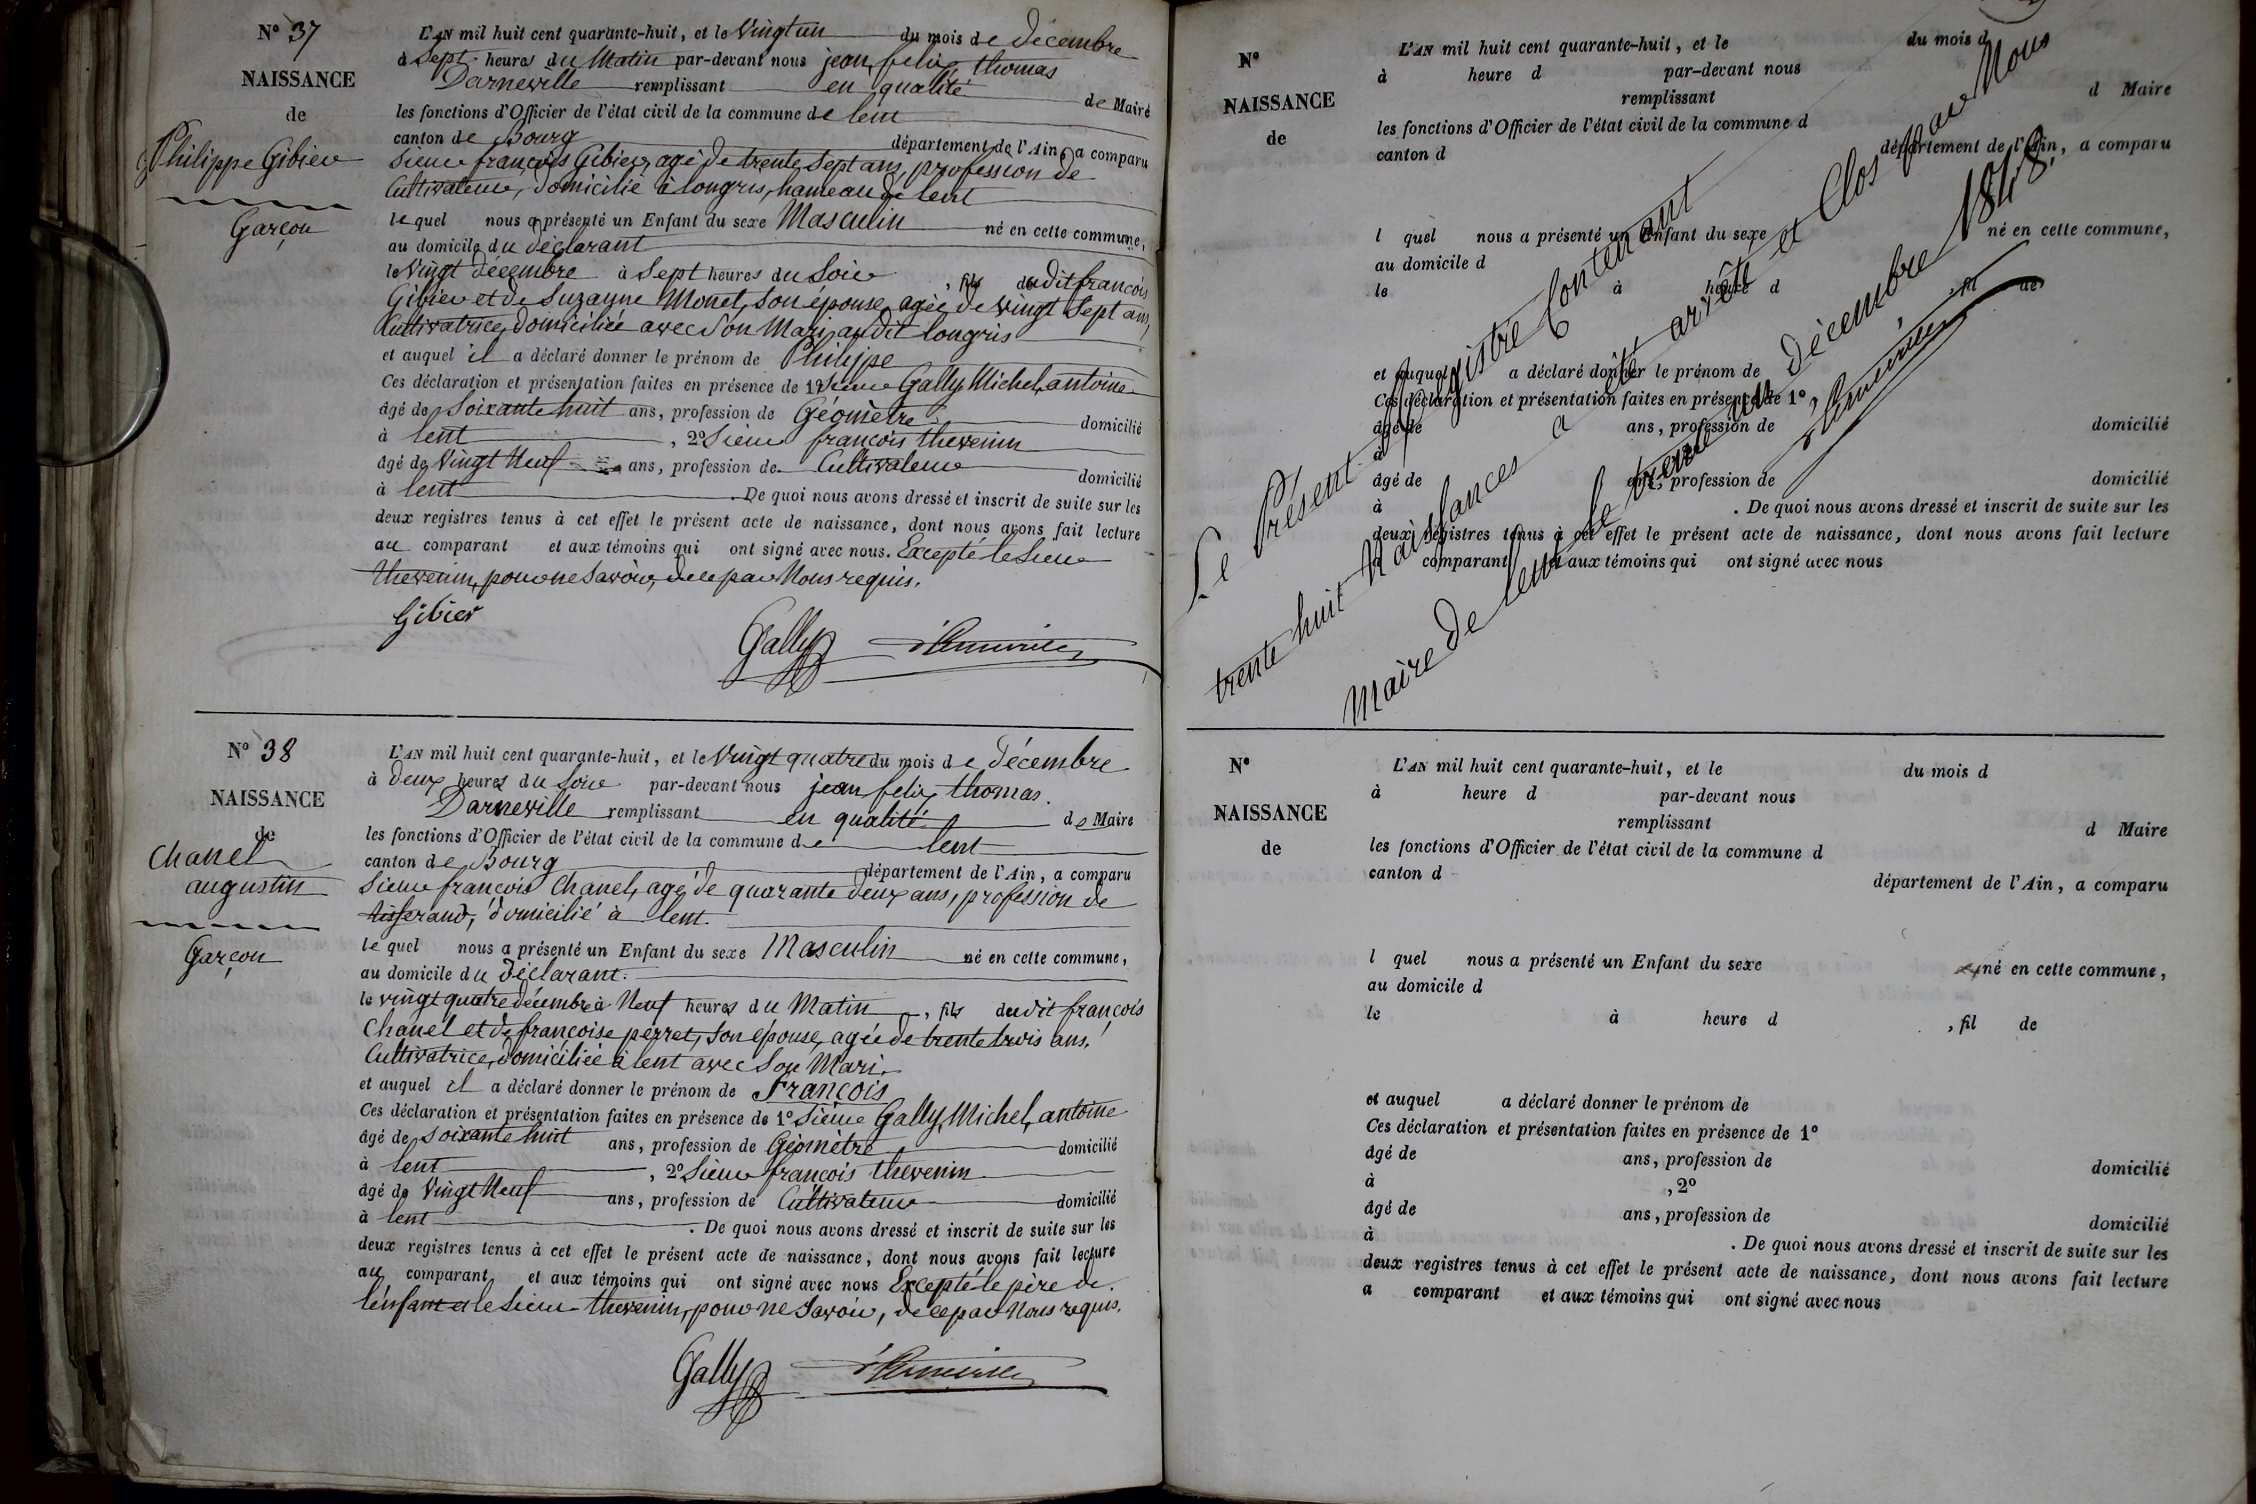 N° 37
NAISSANCE
de
Philippe Gibier
Garçon
L'AN mil huit cent quarante-huit, et le vingt un du mois de décembre
à sept heures du Matin par-devant nous jean felix thomas
Darneville remplissant en qualité de Maire
les fonctions d'Officier de l'état civil de la commune de lent
canton de Bourg département de l'Ain, a comparu
Sieur françois Gibier, agé de trente sept ans, profession de
Cultivateur, domicilié à longris, hameau de lent
le quel nous a présenté un Enfant du sexe Masculin né en cette commune,
au domicile du déclarant
le vingt décembre à sept heures du Soir, fils dudit françois
Gibier et de Suzanne Monet, son épouse, agée de vingt sept ans,
Cultivatrice, domiciliée avec Son Mari, audit longris
et auquel il a déclaré donner le prénom de Philippe
Ces déclaration et présentation faites en présence de 1° Sieur Gally, Michel, antoine
âgé de Soixante huit ans, profession de Géomètre domicilié
à lent, 2° Sieur françois thevenin
âgé de vingt Neuf ans, profession de Cultivateur domicilié
à lent. De quoi nous avons dressé et inscrit de suite sur les
deux registres tenus à cet effet le présent acte de naissance, dont nous avons fait lecture
au comparant et aux témoins qui ont signé avec nous. Excepté le Sieur
thevenin, pour ne Savoir, de ce par Nous requis.
Gibier
Gally d'Arneville
N° 38
NAISSANCE
de
Chanel
augustin
Garçon
L'AN mil huit cent quarante-huit, et le vingt quatre du mois de décembre
à deux heures du Soir par-devant nous jean felix thomas.
Darneville remplissant en qualité de Maire
les fonctions d'Officier de l'état civil de la commune de lent
canton de Bourg département de l'Ain, a comparu
Sieur françois Chanel, agé de quarante deux ans, profession de
tisserand, domicilié à lent.
le quel nous a présenté un Enfant du sexe Masculin né en cette commune,
au domicile du déclarant.
le vingt quatre décembre à Neuf heures du Matin, fils dudit françois
Chanel et de françoise perret, son épouse, agée de trente trois ans,
Cultivatrice, domiciliée à lent avec Son Mari.
et auquel il a déclaré donner le prénom de François
Ces déclaration et présentation faites en présence de 1° Sieur Gally, Michel, antoine
âgé de Soixante huit ans, profession de Géomètre domicilié
à lent, 2° Sieur françois thevenin
âgé de vingt Neuf ans, profession de Cultivateur domicilié
à lent. De quoi nous avons dressé et inscrit de suite sur les
deux registres tenus à cet effet le présent acte de naissance, dont nous avons fait lecture
au comparant et aux témoins qui ont signé avec nous Excepté le père de
l'enfant et le Sieur thevenin, pour ne Savoir, de ce par Nous requis.
Gally d'Arneville
N°
NAISSANCE
de
L'AN mil huit cent quarante-huit, et le du mois d
à heure d par-devant nous
remplissant d Maire
les fonctions d'Officier de l'état civil de la commune d
canton d département de l'Ain, a comparu
l quel nous a présenté un Enfant du sexe né en cette commune,
au domicile d
le à heure d , fil de
et auquel a déclaré donner le prénom de
Ces déclaration et présentation faites en présence de 1°
âgé de ans, profession de domicilié
à
âgé de ans, profession de domicilié
à . De quoi nous avons dressé et inscrit de suite sur les
deux registres tenus à cet effet le présent acte de naissance, dont nous avons fait lecture
a comparant et aux témoins qui ont signé avec nous
Le Présent Registre Contenant
trente huit Naissances a été arrêté et Clos par Nous
Maire de lent le trente un décembre 1848.
d'Arneville
N°
NAISSANCE
de
L'AN mil huit cent quarante-huit, et le du mois d
à heure d par-devant nous
remplissant d Maire
les fonctions d'Officier de l'état civil de la commune d
canton d département de l'Ain, a comparu
l quel nous a présenté un Enfant du sexe né en cette commune,
au domicile d
le à heure d , fil de
et auquel a déclaré donner le prénom de
Ces déclaration et présentation faites en présence de 1°
âgé de ans, profession de domicilié
à , 2°
âgé de ans, profession de domicilié
à . De quoi nous avons dressé et inscrit de suite sur les
deux registres tenus à cet effet le présent acte de naissance, dont nous avons fait lecture
a comparant et aux témoins qui ont signé avec nous